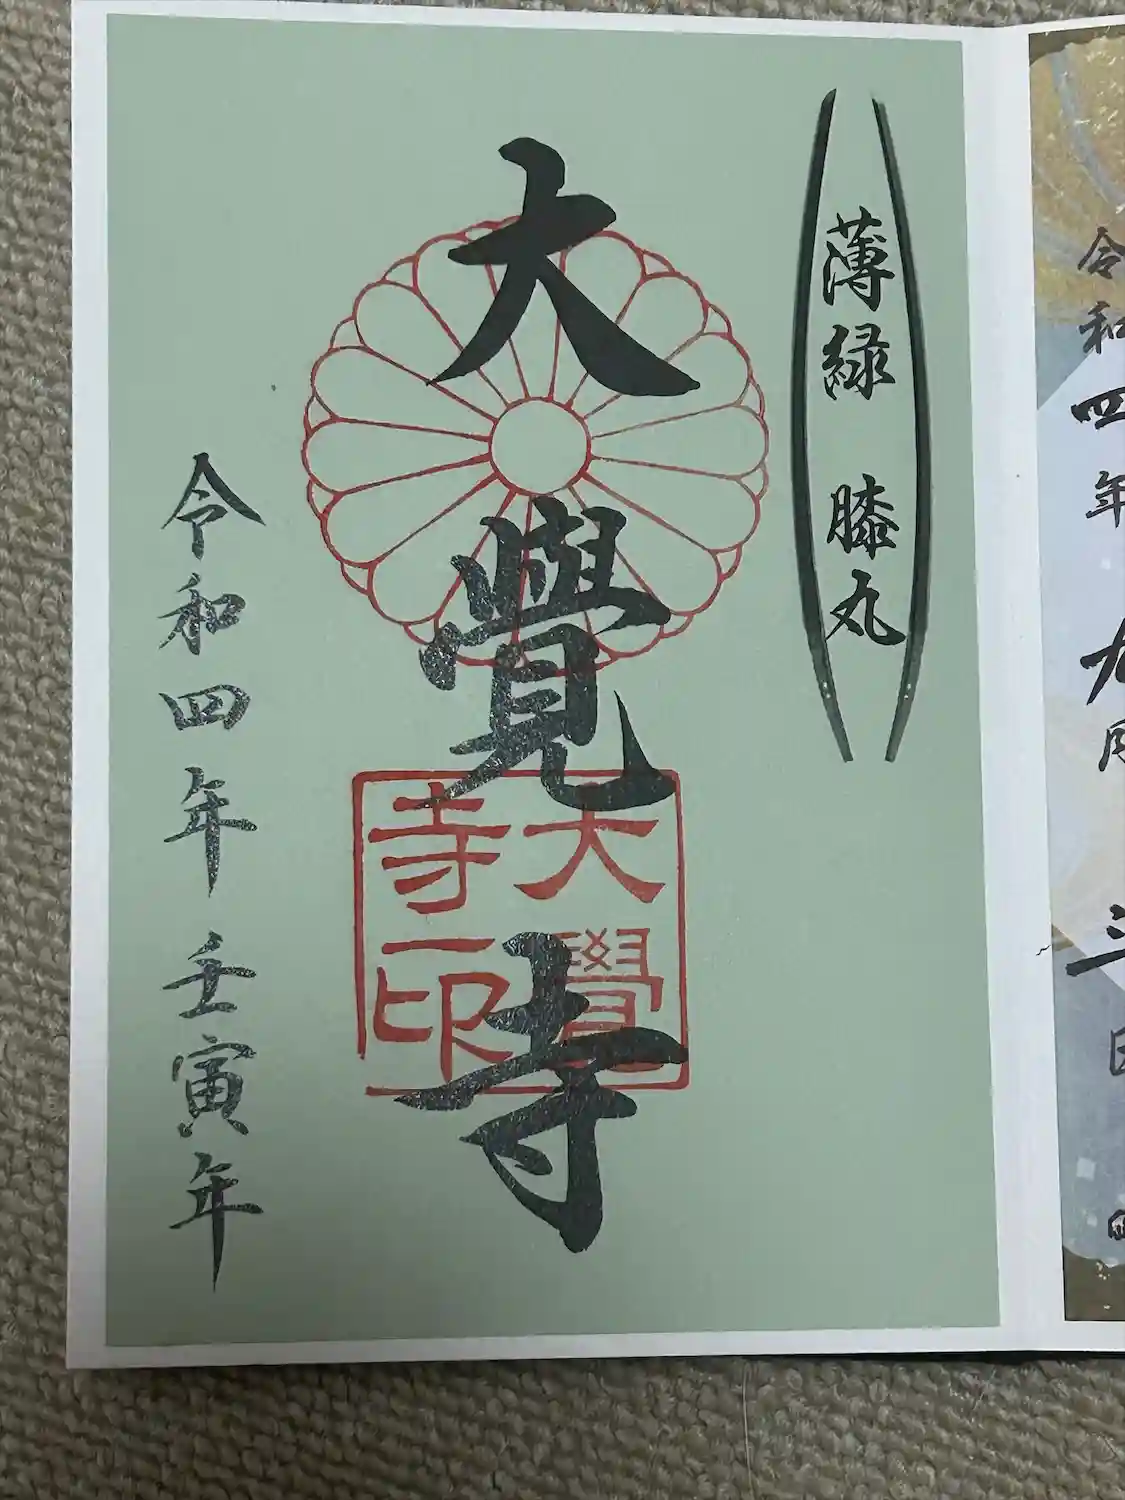 薄緑 膝丸
大覺寺
大覺
寺印
令和四年壬寅年
令和四年九月
日